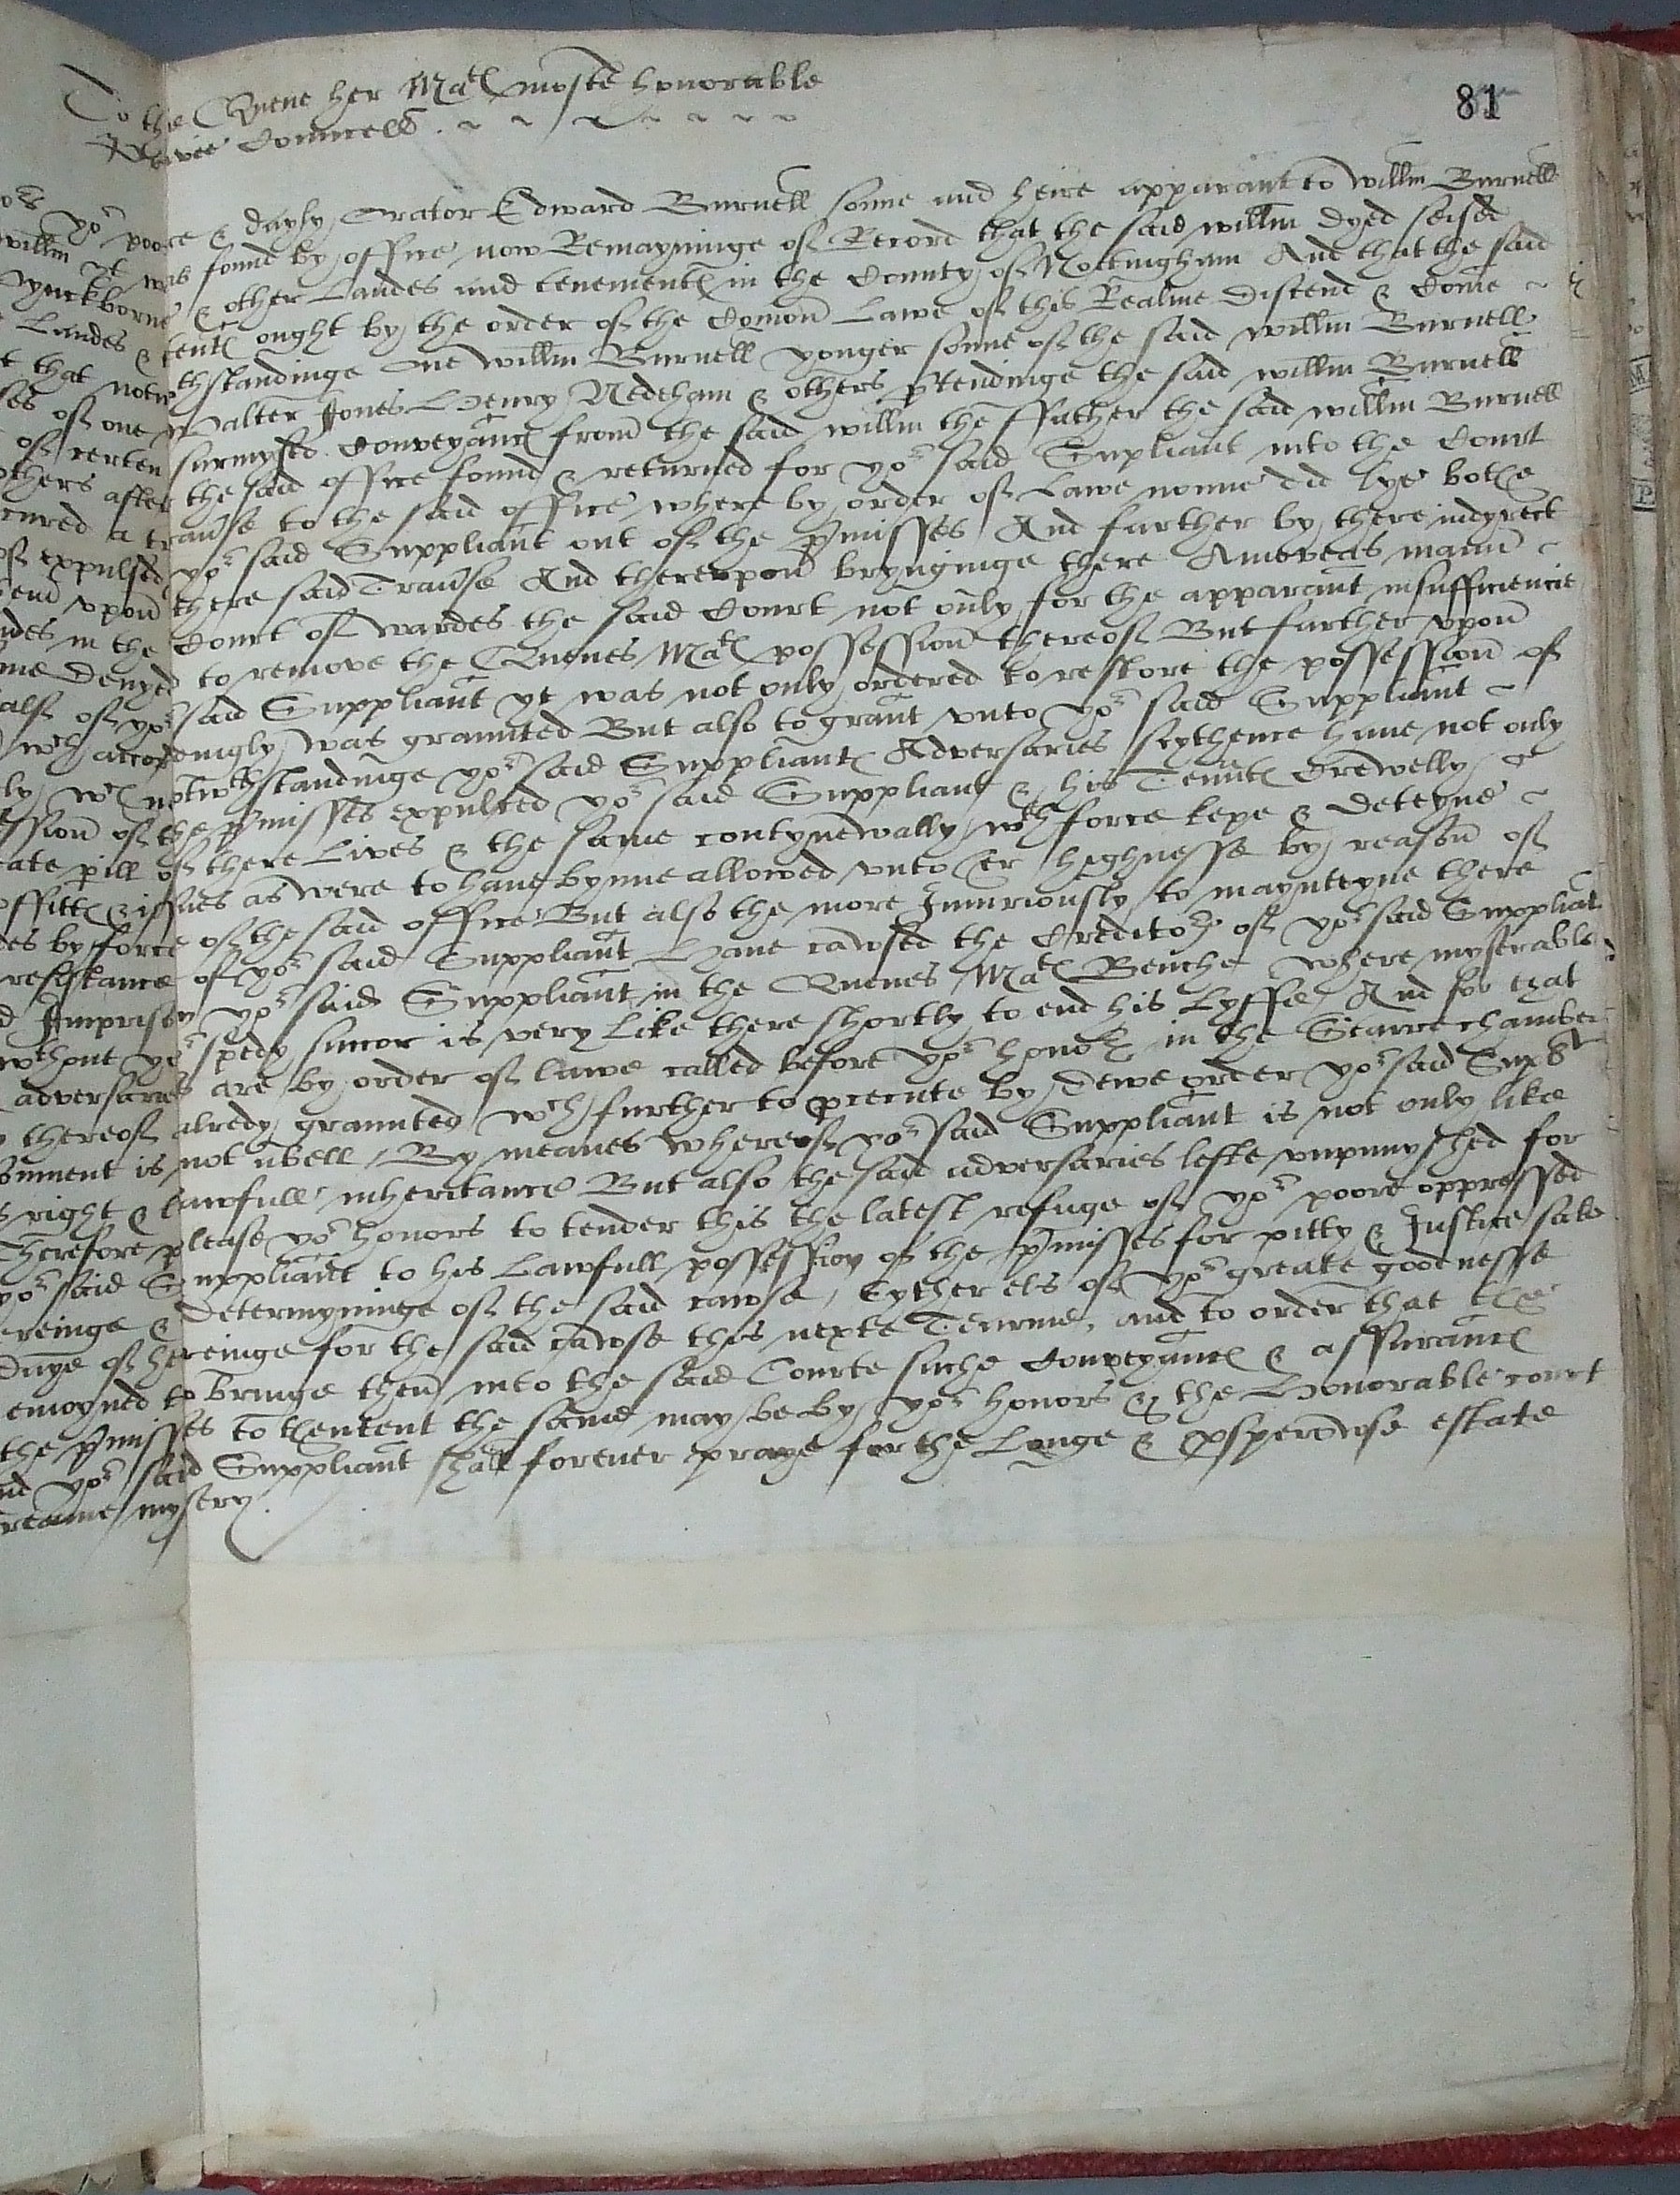 81
To the Quene her Ma^(te) moste honorable
Privie Counsell
yo^r poore & dayly Orator Edward Burnell sonne and heire apparant to willm Burnell
willm yt was found by office now Remayninge of Record that the said willm dyed seised
wynckborne & other Landes and tenement in the County of Nottingham And that the said
Landes & tent ought by the order of the Comon Lawe of this Realme discend & Come
that notwthstandinge One willm Burnell yonger sonne of the said willm Burnell
of one Walter Jones Henry Nedeham & others pretendinge the said willm Burnell
of certen surmysed Conveyanc from the said willm the ffather the said willm Burnell
others after the said office found & returned for yo^r said Supliant into the Court
a trause to the said office where by order of Lawe nonne did lye bothe
expulsed yo^r said Suppliant out of the pmisses And further by there indyrect
upon there said Trause And therevpon brynginge there Amoveas manu
in the Court of wardes the said Court not only for the apparant insufficiencie
denyed to remove the Quenes Ma^(te) possession thereof But further vpon
of yo^r said Suppliant yt was not only ordered to restore the possession of
w^ch accordingly was graunted But also to graunt vnto yo^r said Suppliant
notw^thstandinge yo^r said Suppliant Adversaries sythence haue not only
of the pmisses expulced yo^r said Suppliant & his Tennt Crewelly
pill of there Lives & the same contynewally w^th force kepe & deteyne
& issues as were to haue bynne allowed vnto her heghnesse by reason of
by force of the said office But also the more Iniuriously to maynteyne there
resistance of yo^r said Suppliant Haue cawsed the Credito^rs of yo^r said Suppliat
Imprison yo^r said Suppliant in the Quenes Ma^(te) Benche where myserable
wthout yo^r spedy succor is very like there shortly to end his Lyffe And for that
adversaries are by order of lawe called before yo^r hono^rs in the Starre chamber
thereof alredy graunted w^ch further to psecute by dewe order yo^r said Sup^(lt)
is not able / By meanes whereof yo^r said Suppliant is not only like
right & lawfull inheritance But also the said adversaries lefte vnpunyshed for
Therefore please yo^r honors to tender this the latest refuge of yo^r poore oppressed
yo^r said Suppliant to his Lawfull possession of the pmisses for pitty & Justice sake
& determyninge of the said cawse / Eyther els of yo^r greate goodnesse
of hereinge for the said cawse this nexte Tearme, and to order that the
to bringe them into the said Courte suche Conveyanc & assuranc
the pmisses to thentent the same may be by yo^r honors & the Honorable court
yo^r said Suppliant shall forever praye for the Longe & psperouse estate
mysery.